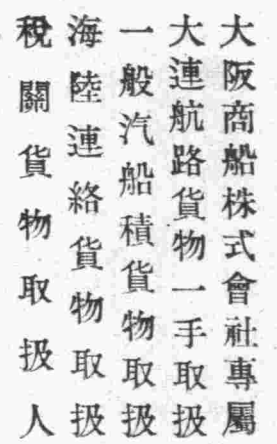 大阪商船株式會社專屬
大連航路貨物一手取扱
一般汽船積貨物取扱
海陸連絡貨物取扱
稅關貨物取扱人